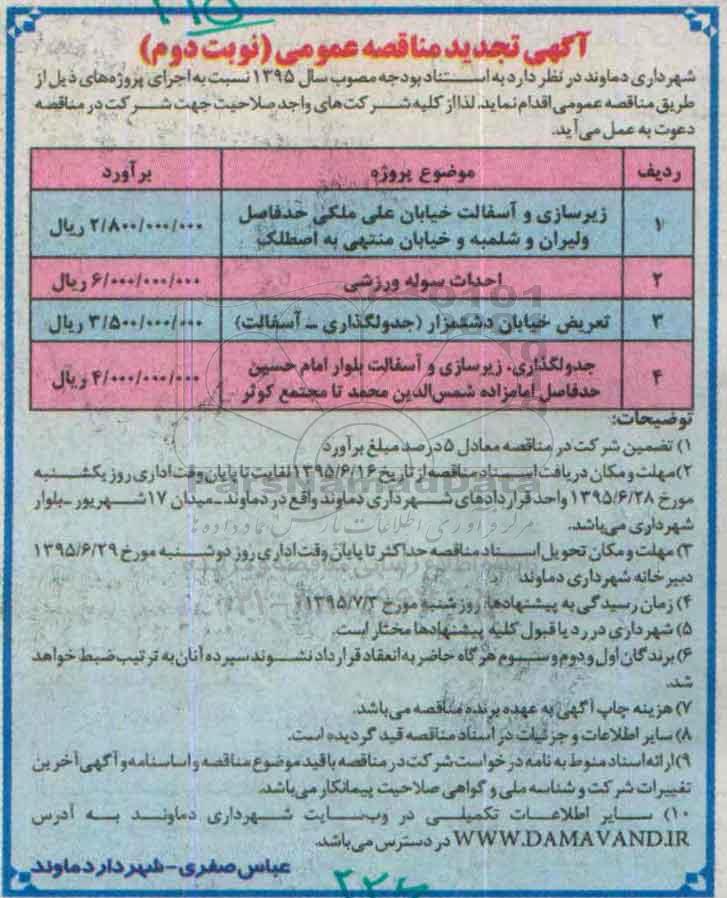 ۲۲۵
آگهی تجدید مناقصه عمومی (نوبت دوم)
شهرداری دماوند در نظر دارد به استناد بودجه مصوب سال ۱۳۹۵ نسبت به اجرای پروژه‌های ذیل از
طریق مناقصه عمومی اقدام نماید. لذا از کلیه شرکت‌های واجد صلاحیت جهت شرکت در مناقصه
دعوت به عمل می‌آید.
ردیف موضوع پروژه برآورد
۱ زیرسازی و آسفالت خیابان علی ملکی حدفاصل
ولیران و شلمبه و خیابان منتهی به اصطلک ۲/۸۰۰/۰۰۰/۰۰۰ ریال
۲ احداث سوله ورزشی ۶/۰۰۰/۰۰۰/۰۰۰ ریال
۳ تعریض خیابان دشتمزار (جدولگذاری ـ آسفالت) ۳/۵۰۰/۰۰۰/۰۰۰ ریال
۴ جدولگذاری، زیرسازی و آسفالت بلوار امام حسین
حدفاصل امامزاده شمس‌الدین محمد تا مجتمع کوثر ۴/۰۰۰/۰۰۰/۰۰۰ ریال
توضیحات:
۱) تضمین شرکت در مناقصه معادل ۵ درصد مبلغ برآورد
۲) مهلت و مکان دریافت اسناد مناقصه از تاریخ ۱۳۹۵/۶/۱۶ لغایت تا پایان وقت اداری روز یکشنبه
مورخ ۱۳۹۵/۶/۲۸ واحد قراردادهای شهرداری دماوند واقع در دماوند ـ میدان ۱۷ شهریور ـ بلوار
شهرداری می‌باشد.
۳) مهلت و مکان تحویل اسناد مناقصه حداکثر تا پایان وقت اداری روز دوشنبه مورخ ۱۳۹۵/۶/۲۹
دبیرخانه شهرداری دماوند
۴) زمان رسیدگی به پیشنهادها: روز شنبه مورخ ۱۳۹۵/۷/۳
۵) شهرداری در رد یا قبول کلیه پیشنهادها مختار است.
۶) برندگان اول و دوم و سوم هر گاه حاضر به انعقاد قرارداد نشوند سپرده آنان به ترتیب ضبط خواهد
شد.
۷) هزینه چاپ آگهی به عهده برنده مناقصه می‌باشد.
۸) سایر اطلاعات و جزئیات در اسناد مناقصه قید گردیده است.
۹) ارائه اسناد منوط به نامه درخواست شرکت در مناقصه با قید موضوع مناقصه و اساسنامه و آگهی آخرین
تغییرات شرکت و شناسه ملی و گواهی صلاحیت پیمانکار می‌باشد.
۱۰) سایر اطلاعات تکمیلی در وب‌سایت شهرداری دماوند به آدرس
WWW.DAMAVAND.IR در دسترس می‌باشد.
عباس صفری - شهردار دماوند
ParsNamadData